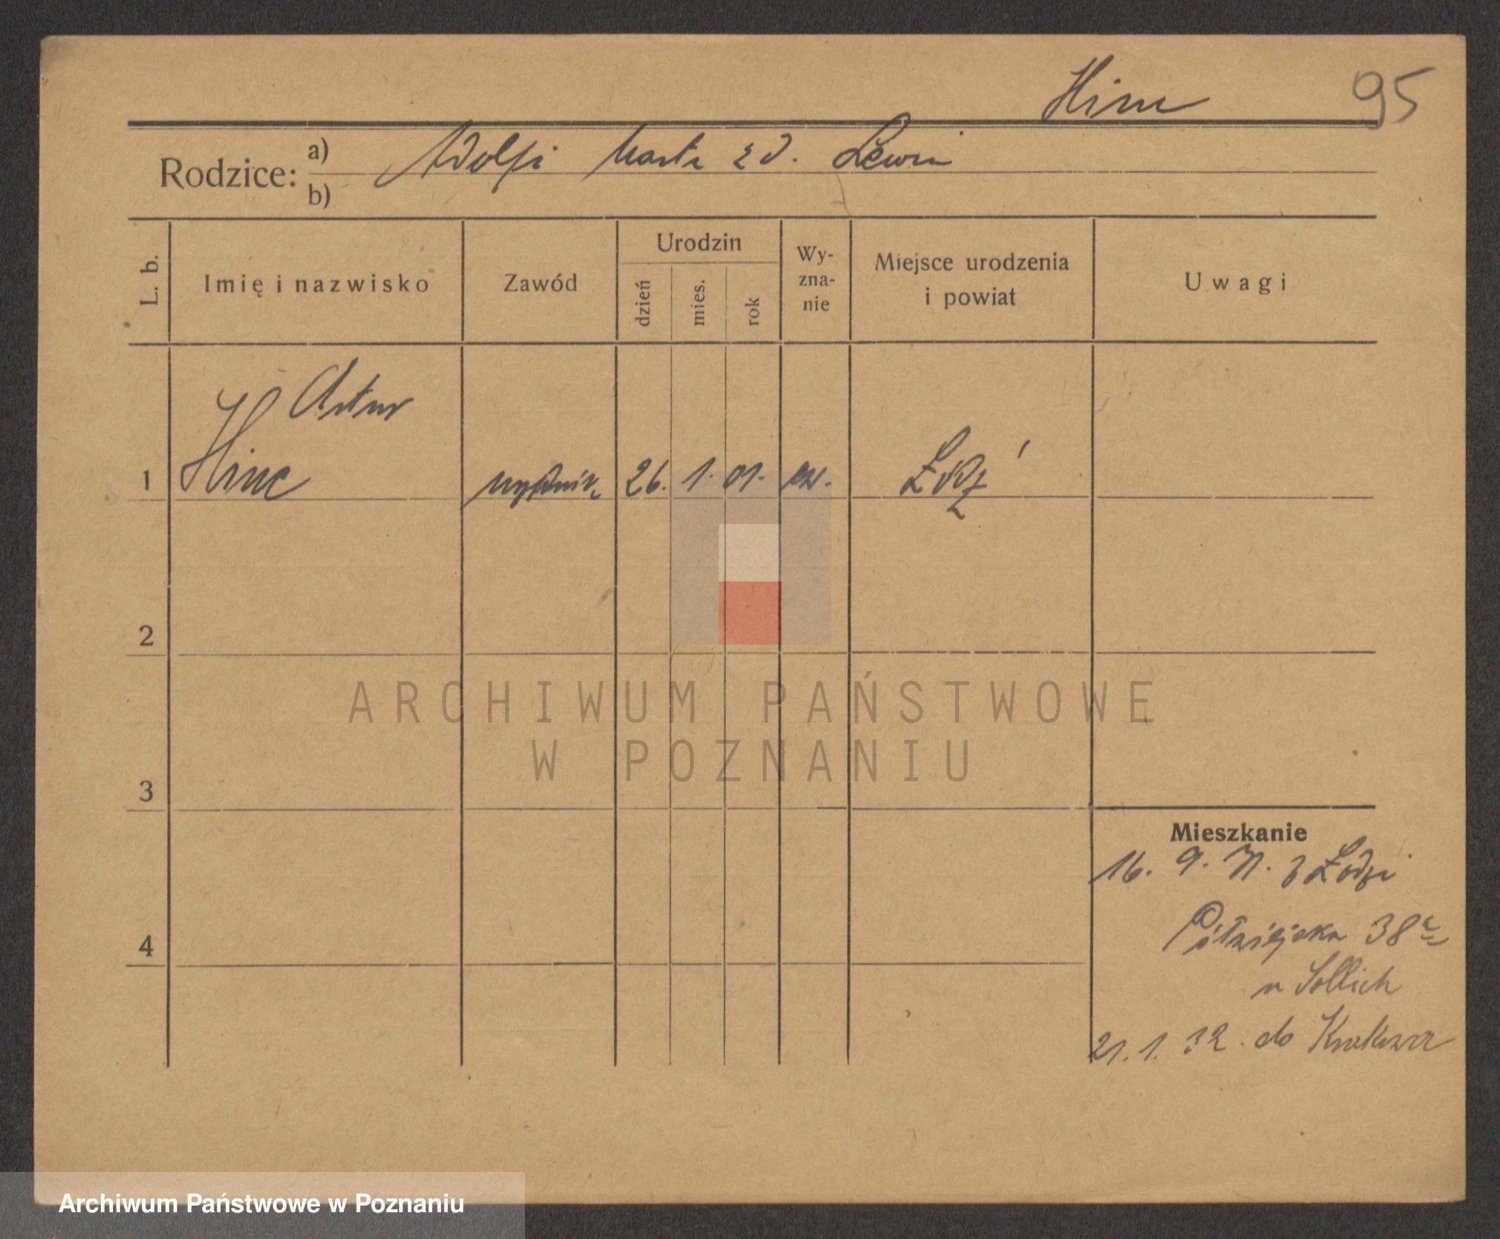 Hinc 95
Rodzice: a) Adolf i Marta z d. Lewin
b)
L. b.
Imię i nazwisko
Zawód
Urodzin
dzień
mies.
rok
Wy-
zna-
nie
Miejsce urodzenia
i powiat
Uwagi
Artur
1 Hinc 26. 1. 01. Łódź
2
3
4
ARCHIWUM PAŃSTWOWE
W POZNANIU
Mieszkanie
16. 9. 31. z Łodzi
38
u Sollich
21. 1. 32. do Krakowa
Archiwum Państwowe w Poznaniu